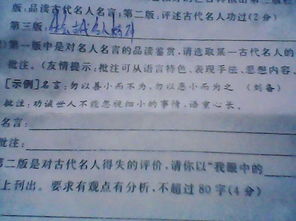 版:品读古代名人名言;第二版:评述古代名人功过(2分)
第三版:
第一版中是对名人名言的品读鉴赏,请选取某一古代名人的
批注。(友情提示:批注可从语言特色、表现手法、思想内容
[示例]名言:勿以善小而不为,勿以恶小而为之 (刘备)
批注:劝诫世人不能忽视细小的事情,语重心长。
名言:
批注:
第二版是对古代名人得失的评价,请你以“我眼中的
上刊出。要求有观点有分析,不超过80字(4分)